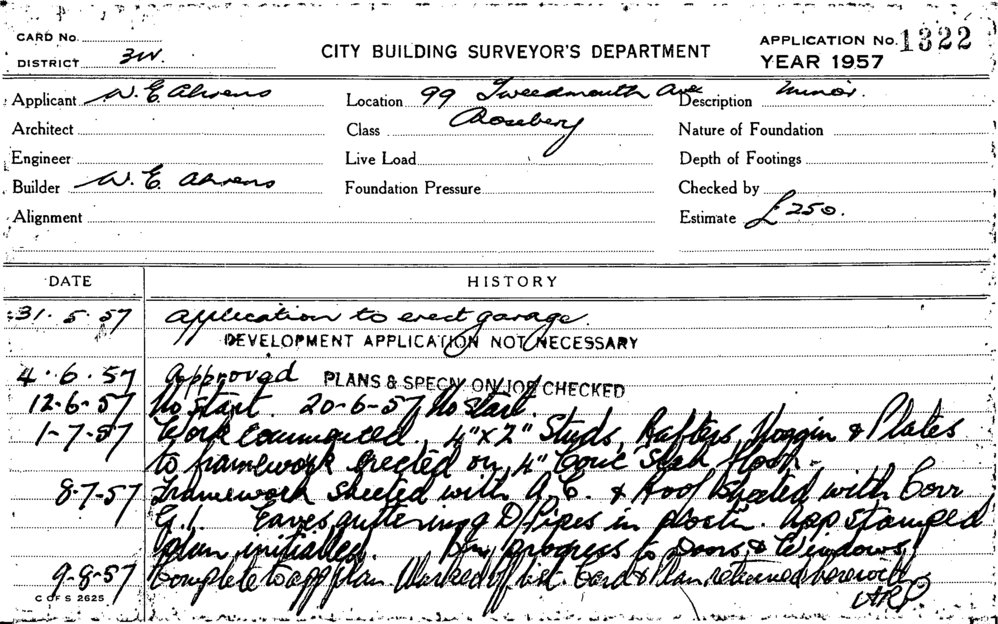 CARD No.
DISTRICT 3W.
CITY BUILDING SURVEYOR'S DEPARTMENT
APPLICATION No. 1322
YEAR 1957
Applicant W. E. Ahrens
Location 99 Tweedmouth Ave
Description Minor.
Architect
Class Rosebery
Nature of Foundation
Engineer
Live Load
Depth of Footings
Builder W. E. Ahrens
Foundation Pressure
Checked by
Alignment
Estimate £250.
DATE HISTORY
31.5.57 Application to erect garage.
DEVELOPMENT APPLICATION NOT NECESSARY
4.6.57 Approved PLANS & SPECN. ON JOB CHECKED
12-6-57 No start. 20-6-57 No start.
1-7-57 Work commenced. 4"x2" Studs, Rafters, Noggin & Plates
to framework erected on 4" Conc Slab floor.
8-7-57 Framework sheeted with A.C. & Roof sheeted with Corr
G.I. Eaves guttering & D/Pipes in positn. App stamped
plan initialled. progress to Doors & Windows
9-8-57 Complete to app plan. Marked off list. Card & Plan returned herewith
ARP.
C OF S 2625